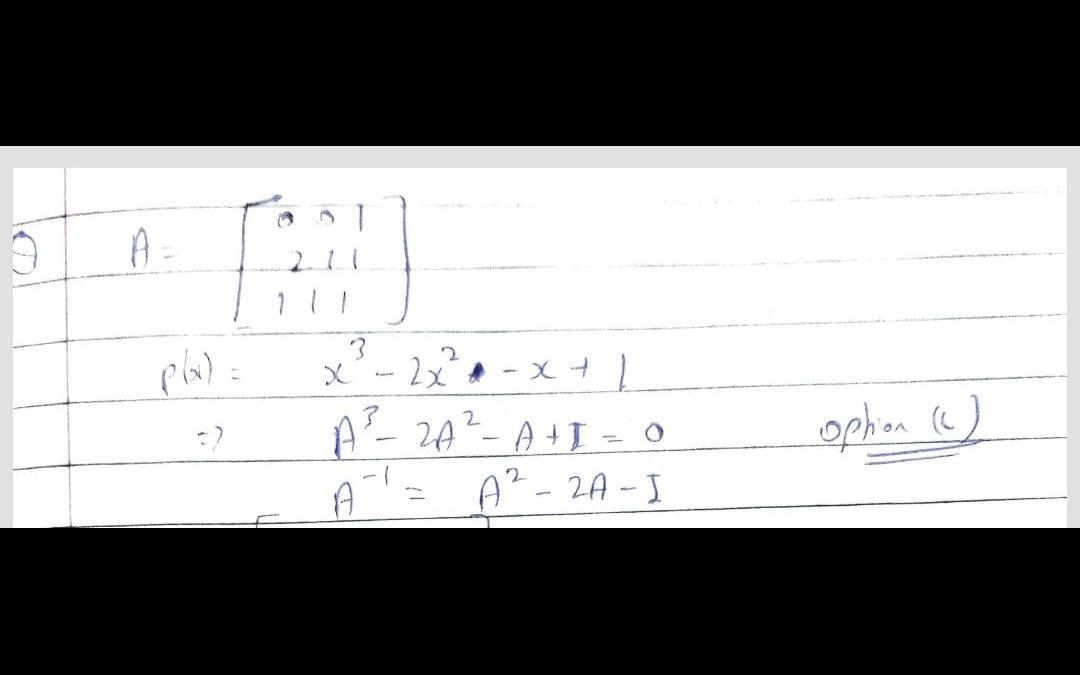 A = [0 0 1
2 1 1
1 1 1]
p(x) = x³ - 2x² - x + 1
=> A³ - 2A² - A + I = 0 option (c)
A⁻¹ = A² - 2A - I